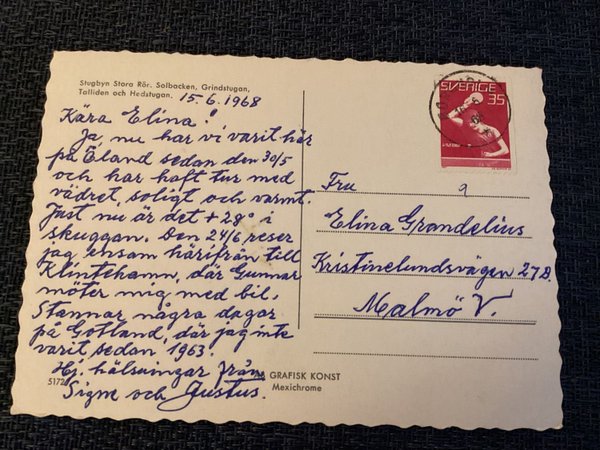 Stugbyn Stora Rör. Solbacken, Grindstugan,
Talliden och Hedstugan. 15.6.1968
Kära Elina!
Ja nu har vi varit här
på Öland sedan den 30/5
och har haft tur med
vädret, soligt och varmt.
Just nu är det +28° i
skuggan. Den 24/6 reser
jag ensam härifrån till
Klintehamn, där Gunnar
möter mig med bil.
Stannar några dagar
på Gotland, där jag inte
varit sedan 1963.
Hj. hälsningar från
Signe och Gustus.
5172
GRAFISK KONST
Mexichrome
SVERIGE
35
Fru
Elina Grandelius
Kristinelundsvägen 27 D.
Malmö V.